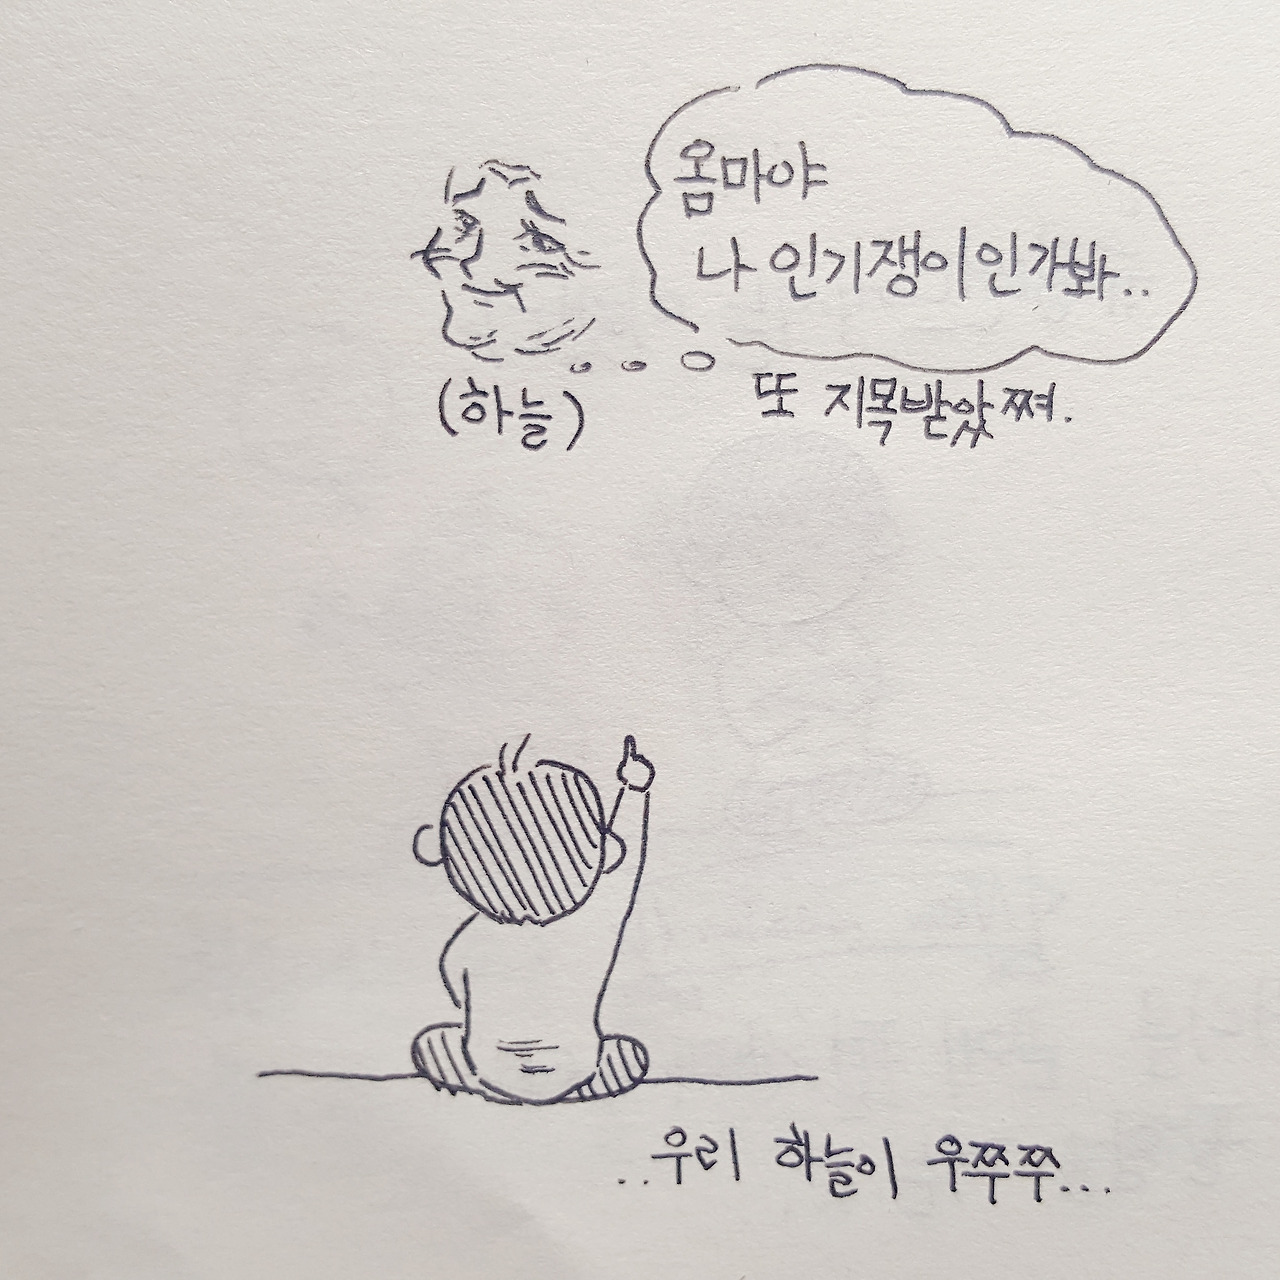 옴마야
나 인기쟁이인가봐..
또 지목받았쪄.
(하늘)
..우리 하늘이 우쭈쭈...